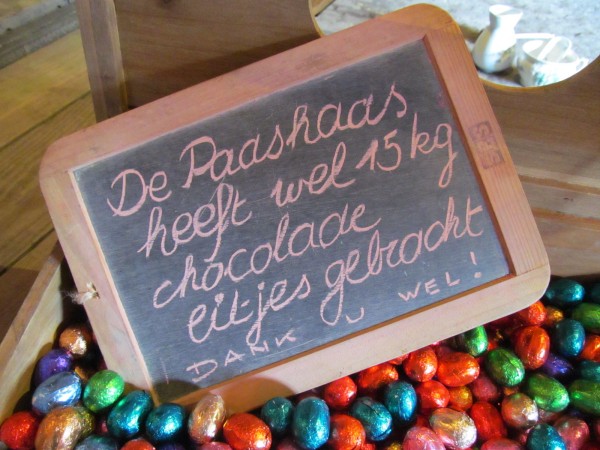 De Paashaas
heeft wel 15kg
chocolade
eitjes gebracht
DANK U WEL!